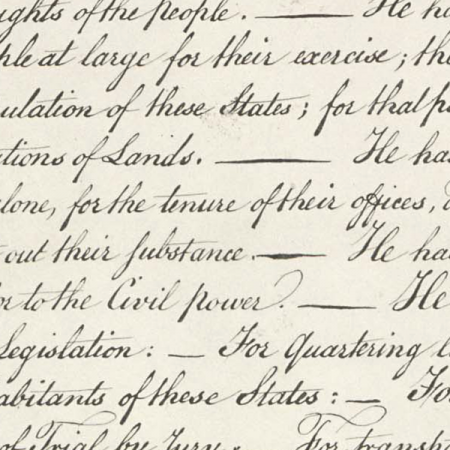 ights of the people. — He ha
ple at large for their exercise; the
ulation of these States; for that p
ations of Lands. — He has
alone, for the tenure of their offices,
out their substance. — He ha
or to the Civil power. — He
Legislation: — For quartering l
abitants of these States: — Fo
of Trial by Jury. For transp